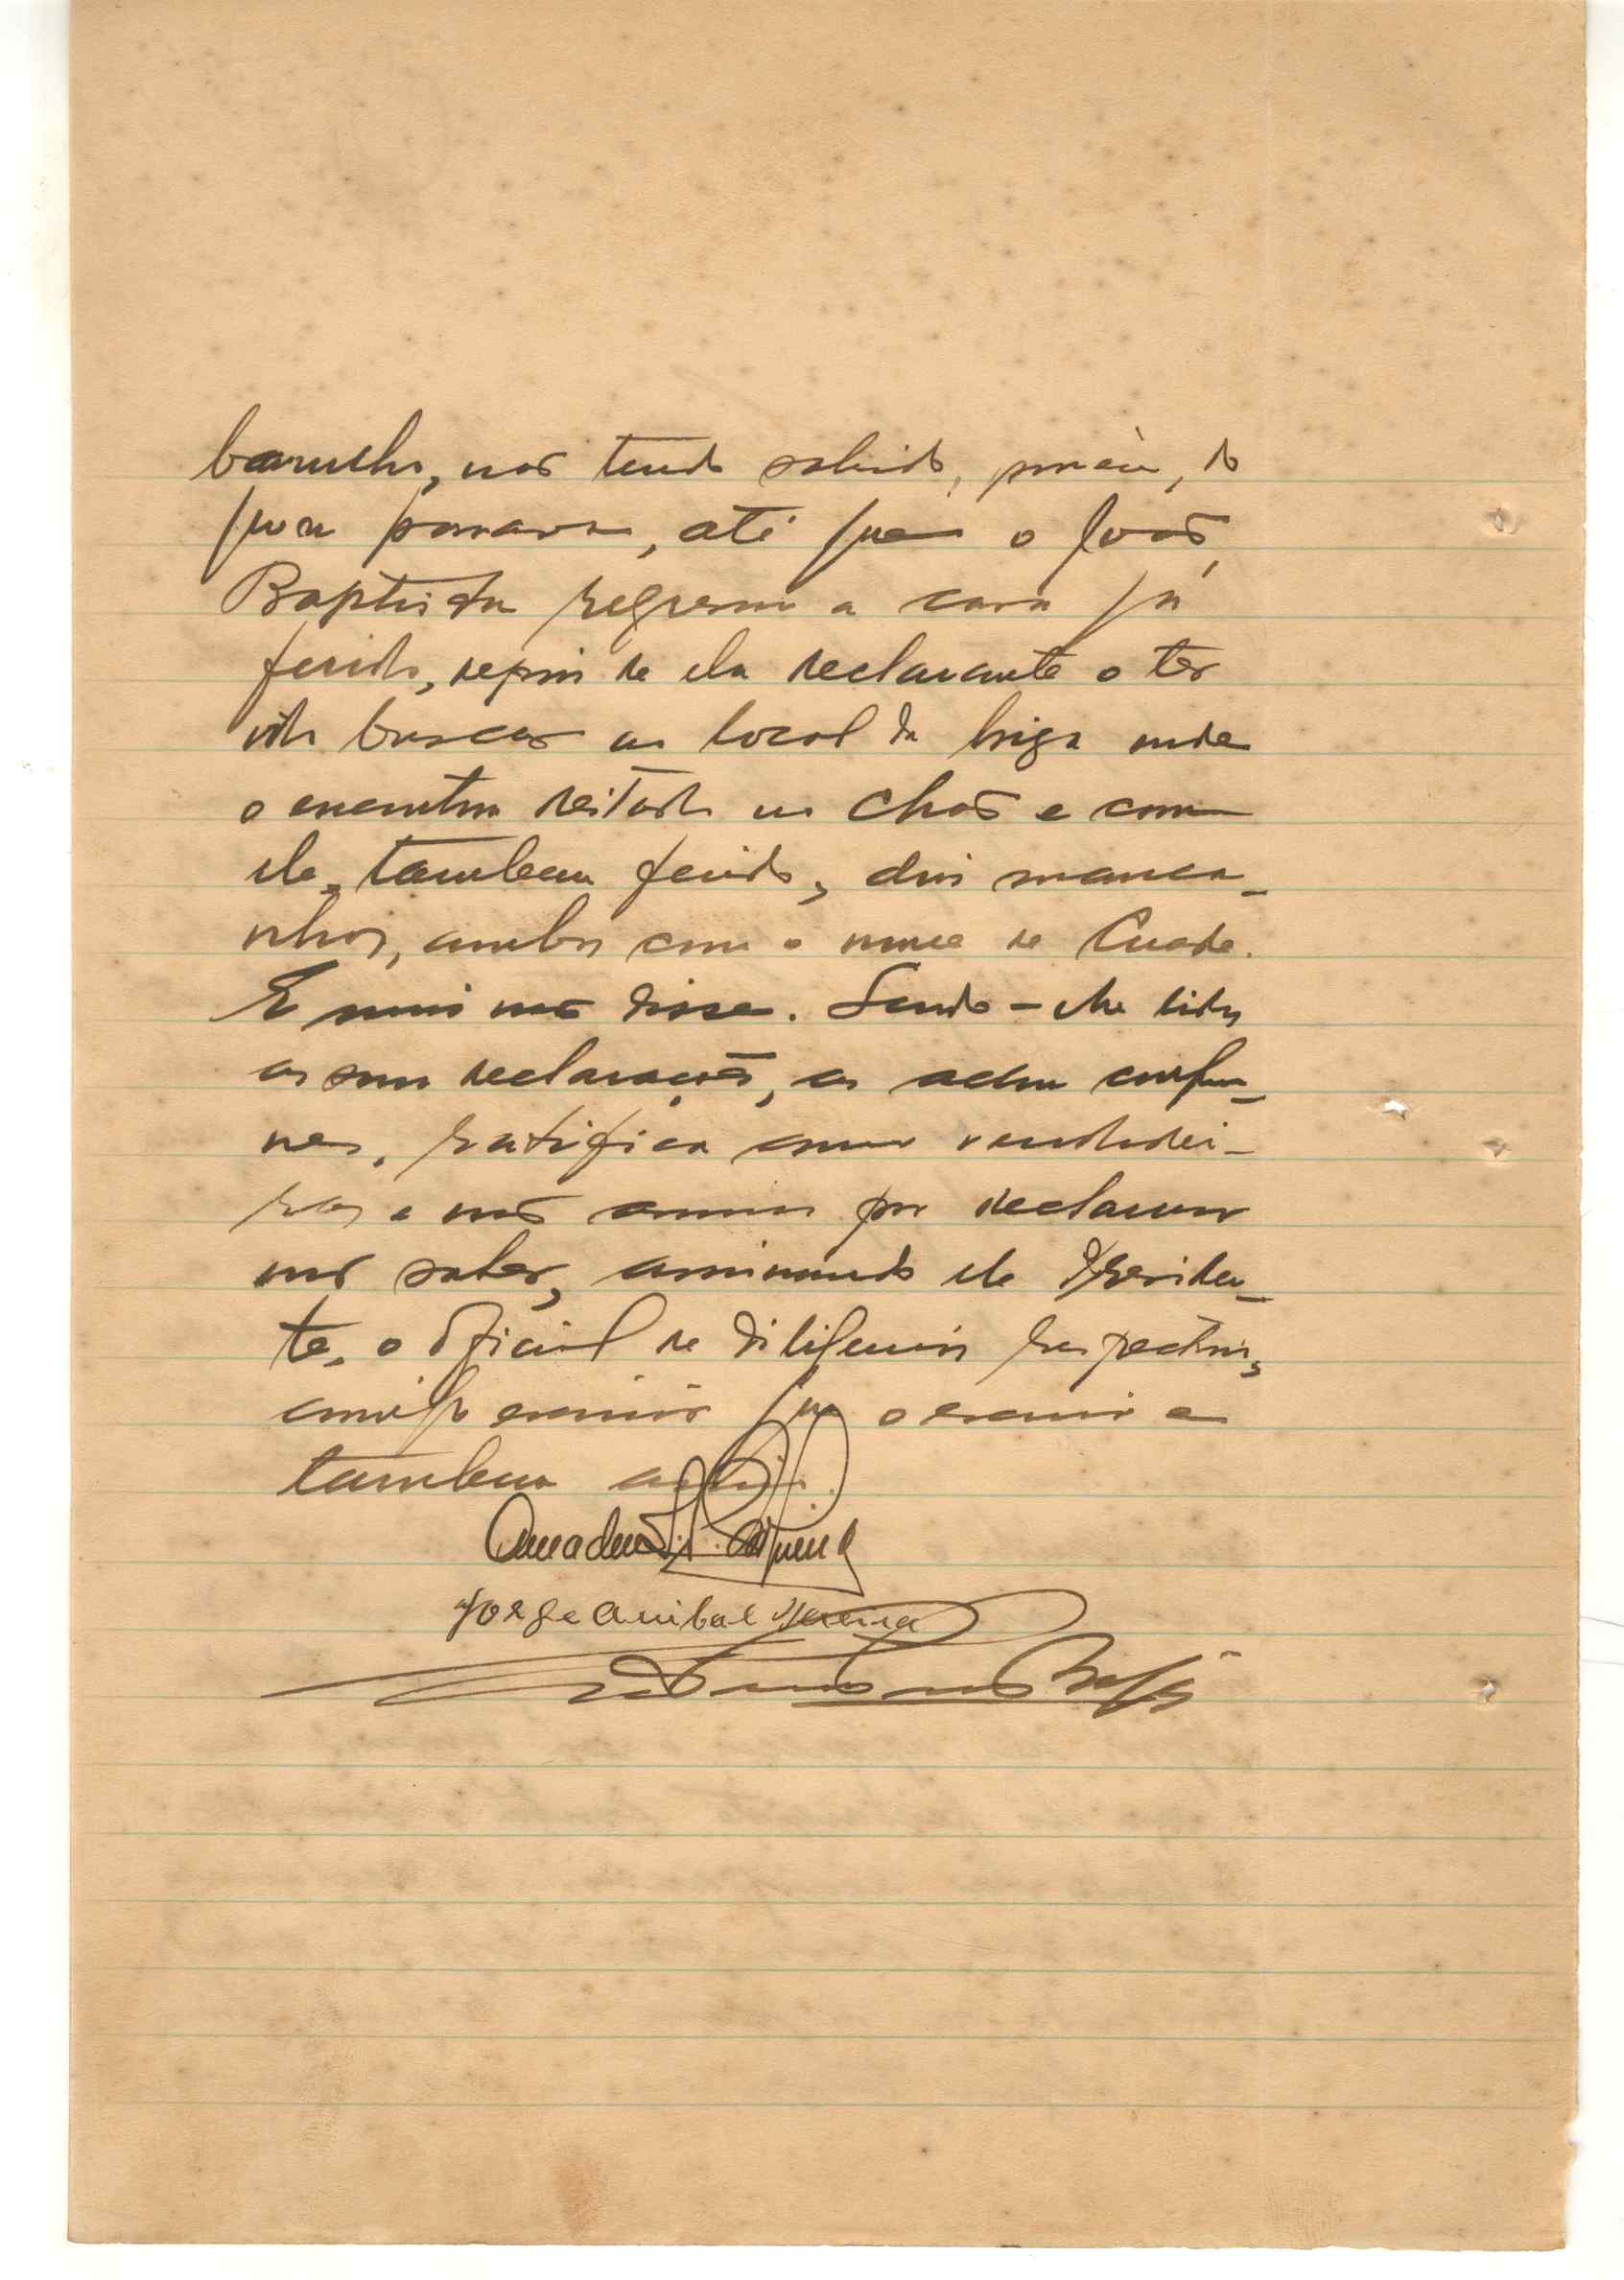 barulho, não tendo sabido, porém, do
que se passava, até que o João
Baptista regressou a casa já
ferido, depois de ela declarante o ter
ido buscar ao local da briga onde
o encontrou deitado no chão e com
ele, tambem ferido, dois manca-
nhos, ambos com o nome de
E mais não disse. Sendo-lhe lidas
as suas declarações, as achou confor-
mes, ratifica como verdadei-
ras e não assina por declarar
não saber, assinando ele Presiden-
te, o oficial de diligencias
comigo escrivão que o escrevi e
tambem assino.
Amadeu
Jorge Anibal Pereira